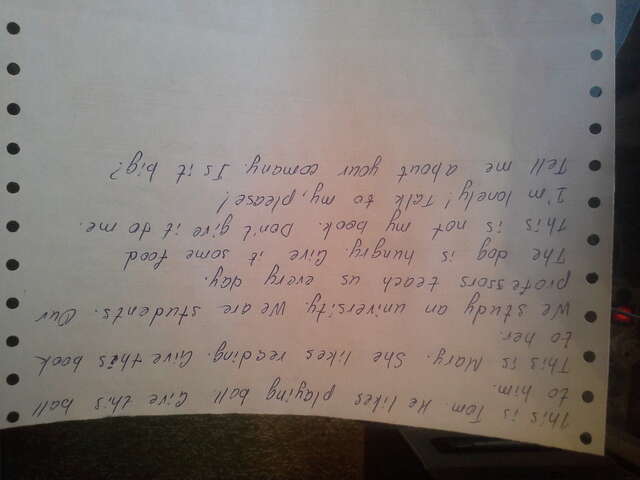 This is Tom. He likes playing ball. Give this ball
to him.
This is Mary. She likes reading. Give this book
to her.
We study an university. We are students. Our
professors teach us every day.
The dog is hungry. Give it some food
This is not my book. Don't give it to me.
I'm lonely! Talk to my, please!
Tell me about your comany. Is it big?